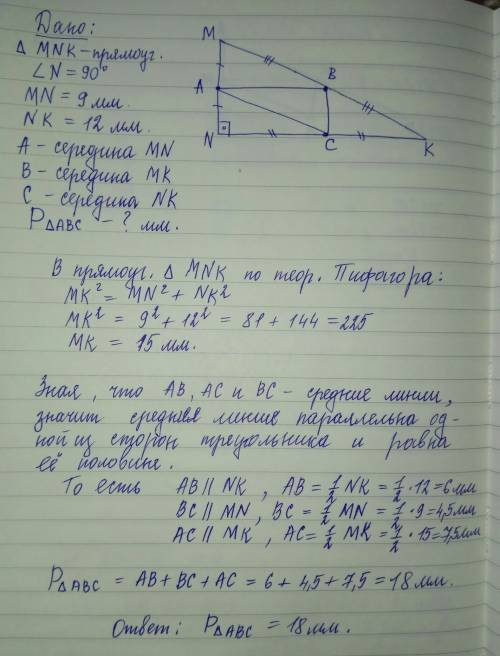 Дано:
Δ MNK - прямоуг.
∠N = 90°
MN = 9 мм.
NK = 12 мм.
A - середина MN
B - середина MK
C - середина NK
PΔABC - ? мм.
M
A
B
N
C
K
В прямоуг. Δ MNK по теор. Пифагора:
MK² = MN² + NK²
MK² = 9² + 12² = 81 + 144 = 225
MK = 15 мм.
Зная, что AB, AC и BC - средние линии,
значит средняя линия параллельна од-
ной из сторон треугольника и равна
её половине.
То есть AB ∥ NK, AB = 1/2 NK = 1/2 · 12 = 6 мм
BC ∥ MN, BC = 1/2 MN = 1/2 · 9 = 4,5 мм
AC ∥ MK, AC = 1/2 MK = 1/2 · 15 = 7,5 мм
PΔABC = AB + BC + AC = 6 + 4,5 + 7,5 = 18 мм.
Ответ: PΔABC = 18 мм.